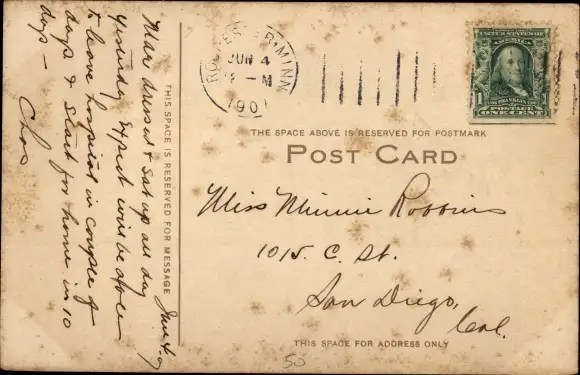 ROCHESTER, MINN.
JUN 4
190
UNITED STATES OF
1 FRANKLIN
POSTAGE
ONE CENT
THE SPACE ABOVE IS RESERVED FOR POSTMARK
POST CARD
THIS SPACE IS RESERVED FOR MESSAGE
June 4-09
dressed & sat up all day
yesterday Expect will be able
to leave hospital in couple of
days & start for home in 10
days -
Chas
Miss Minnie Robbins
1015. C. St.
San Diego,
Cal.
THIS SPACE FOR ADDRESS ONLY
50